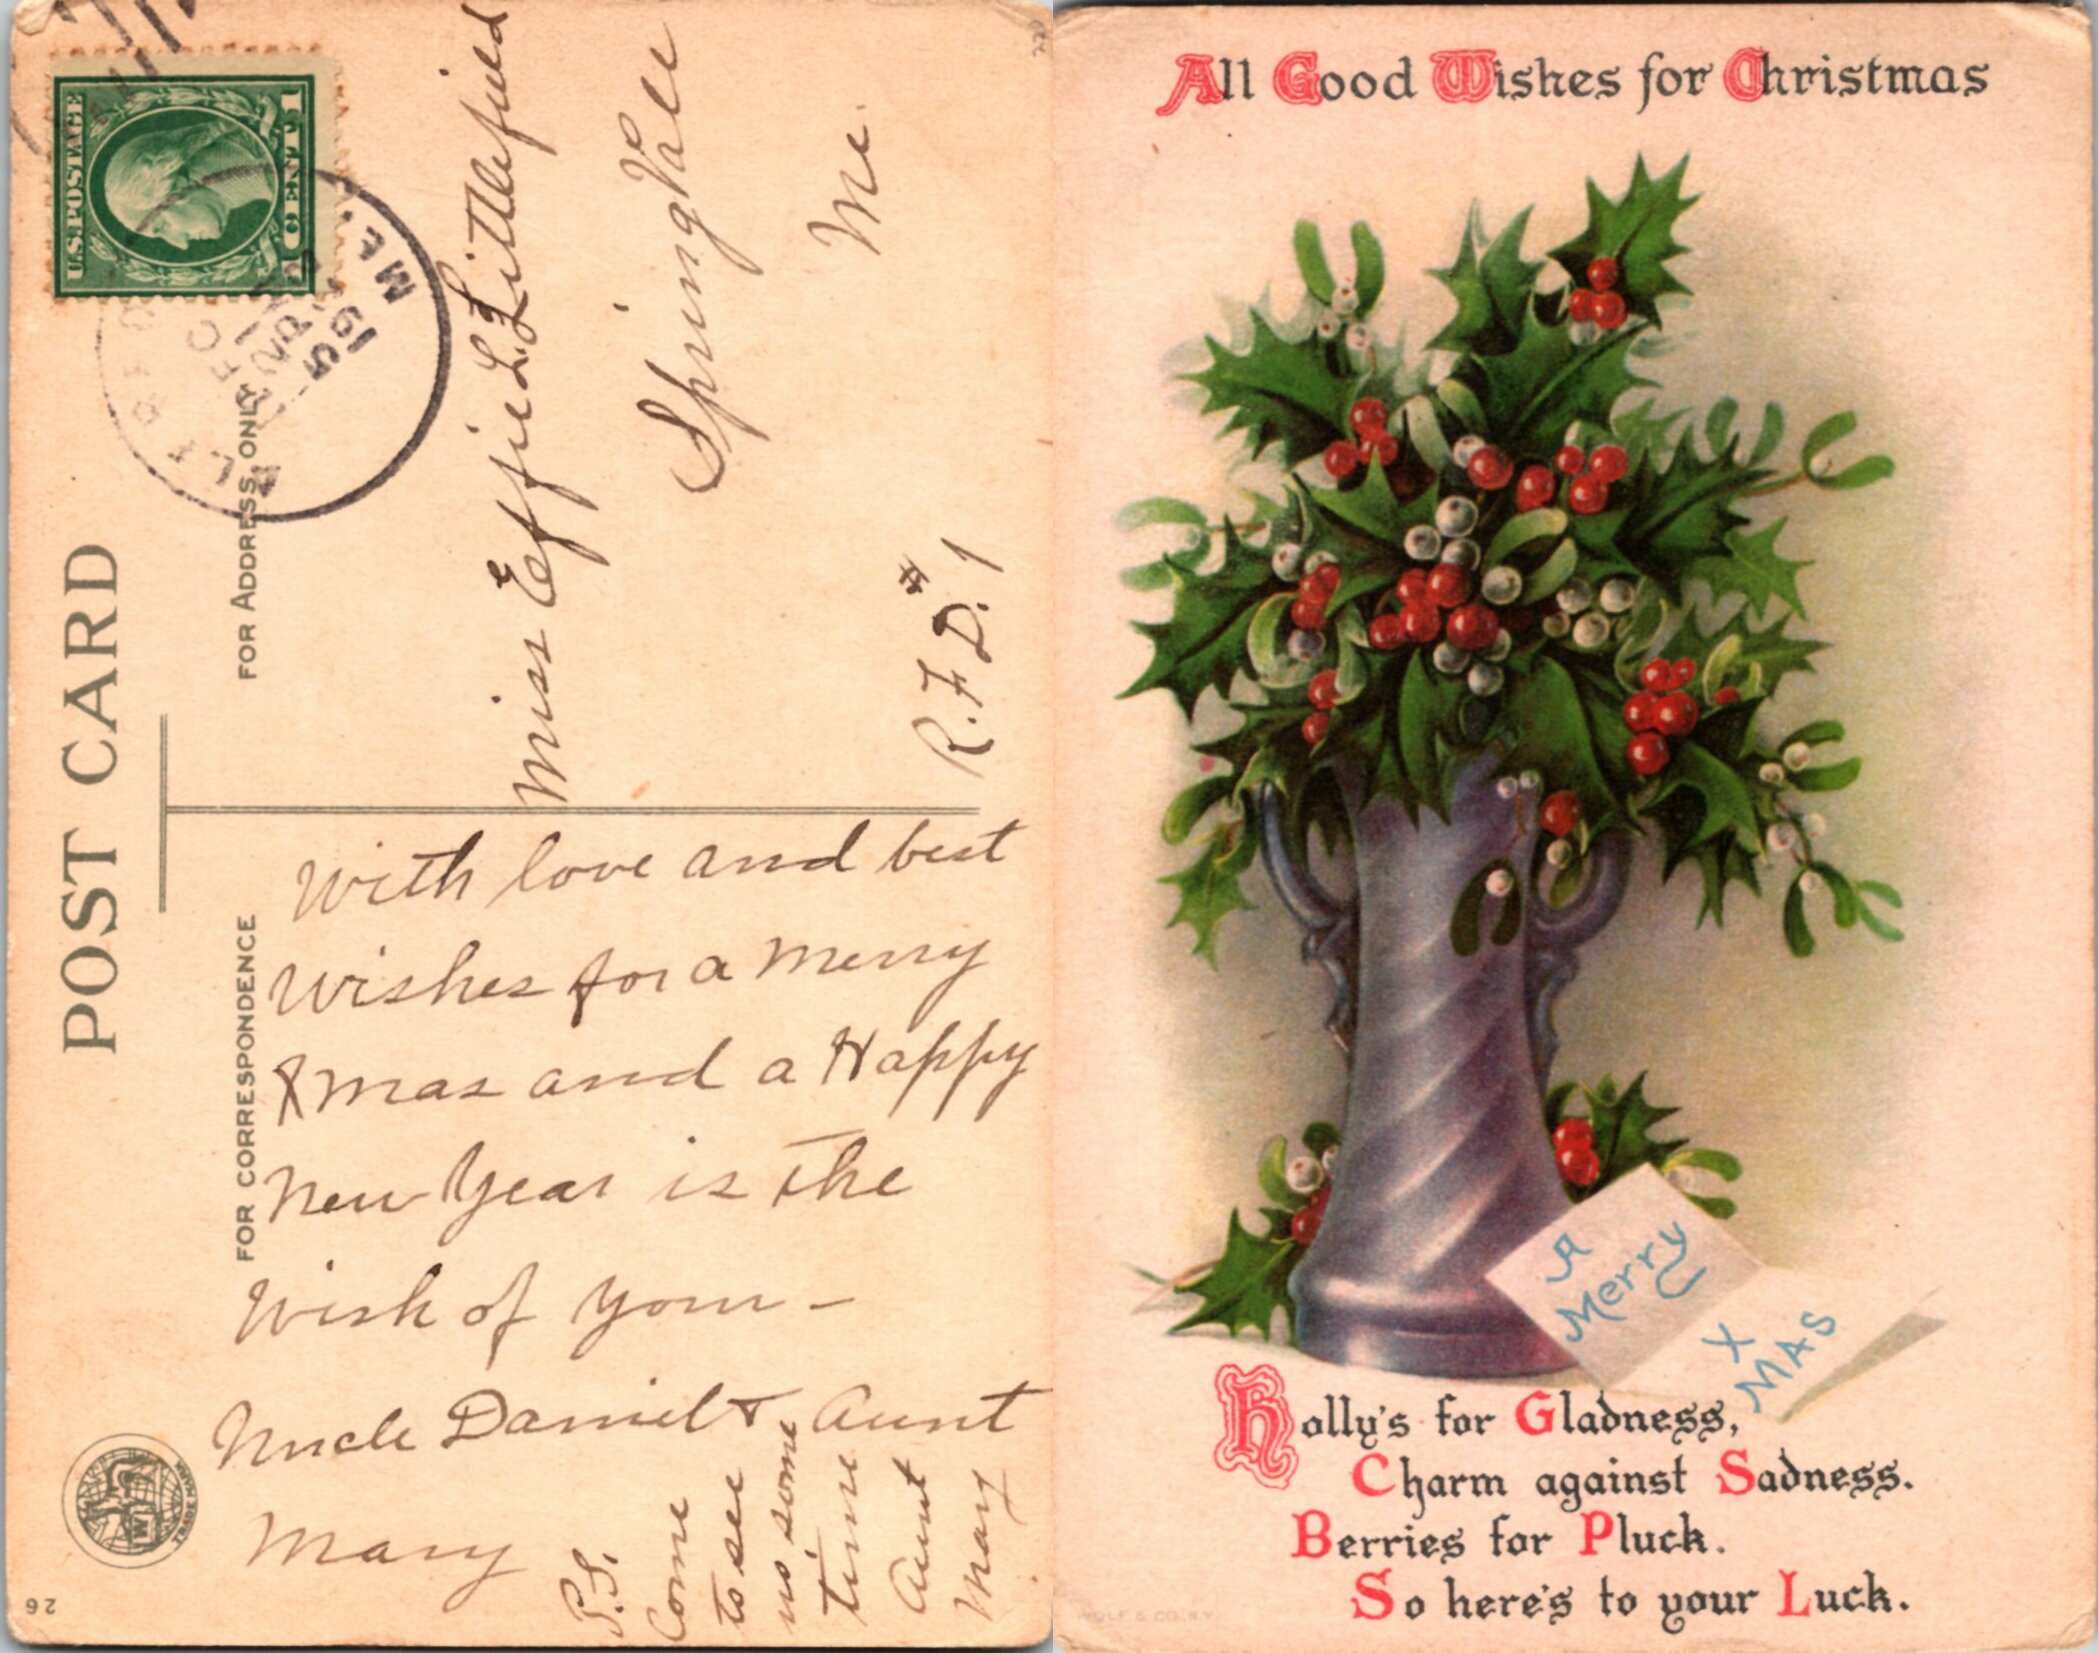 POST CARD
FOR ADDRESS ONLY
FOR CORRESPONDENCE
U.S. POSTAGE
1 CENT 1
ME.
Miss Effie L. Littlefield
Springvale
Me.
R.F.D. #1
With love and best
wishes for a merry
Xmas and a Happy
New Year is the
wish of your –
Uncle Daniel & Aunt
Mary
P.S.
Come
to see
us some
time
Aunt
Mary
TRADE MARK
26
All Good Wishes for Christmas
A
Merry
X
MAS
Holly's for Gladness,
Charm against Sadness.
Berries for Pluck.
So here's to your Luck.
WOLF & CO. N.Y.